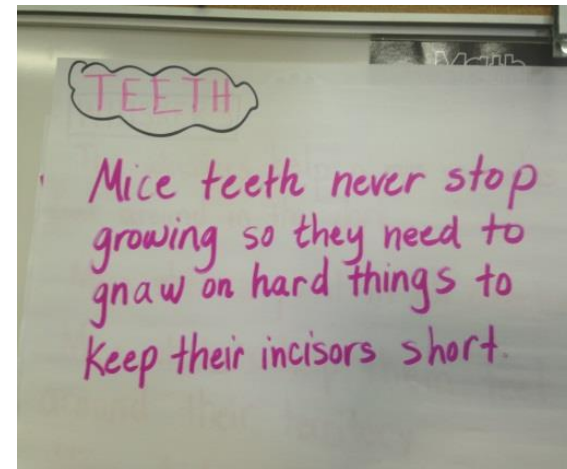 Math
TEETH
Mice teeth never stop
growing so they need to
gnaw on hard things to
keep their incisors short.